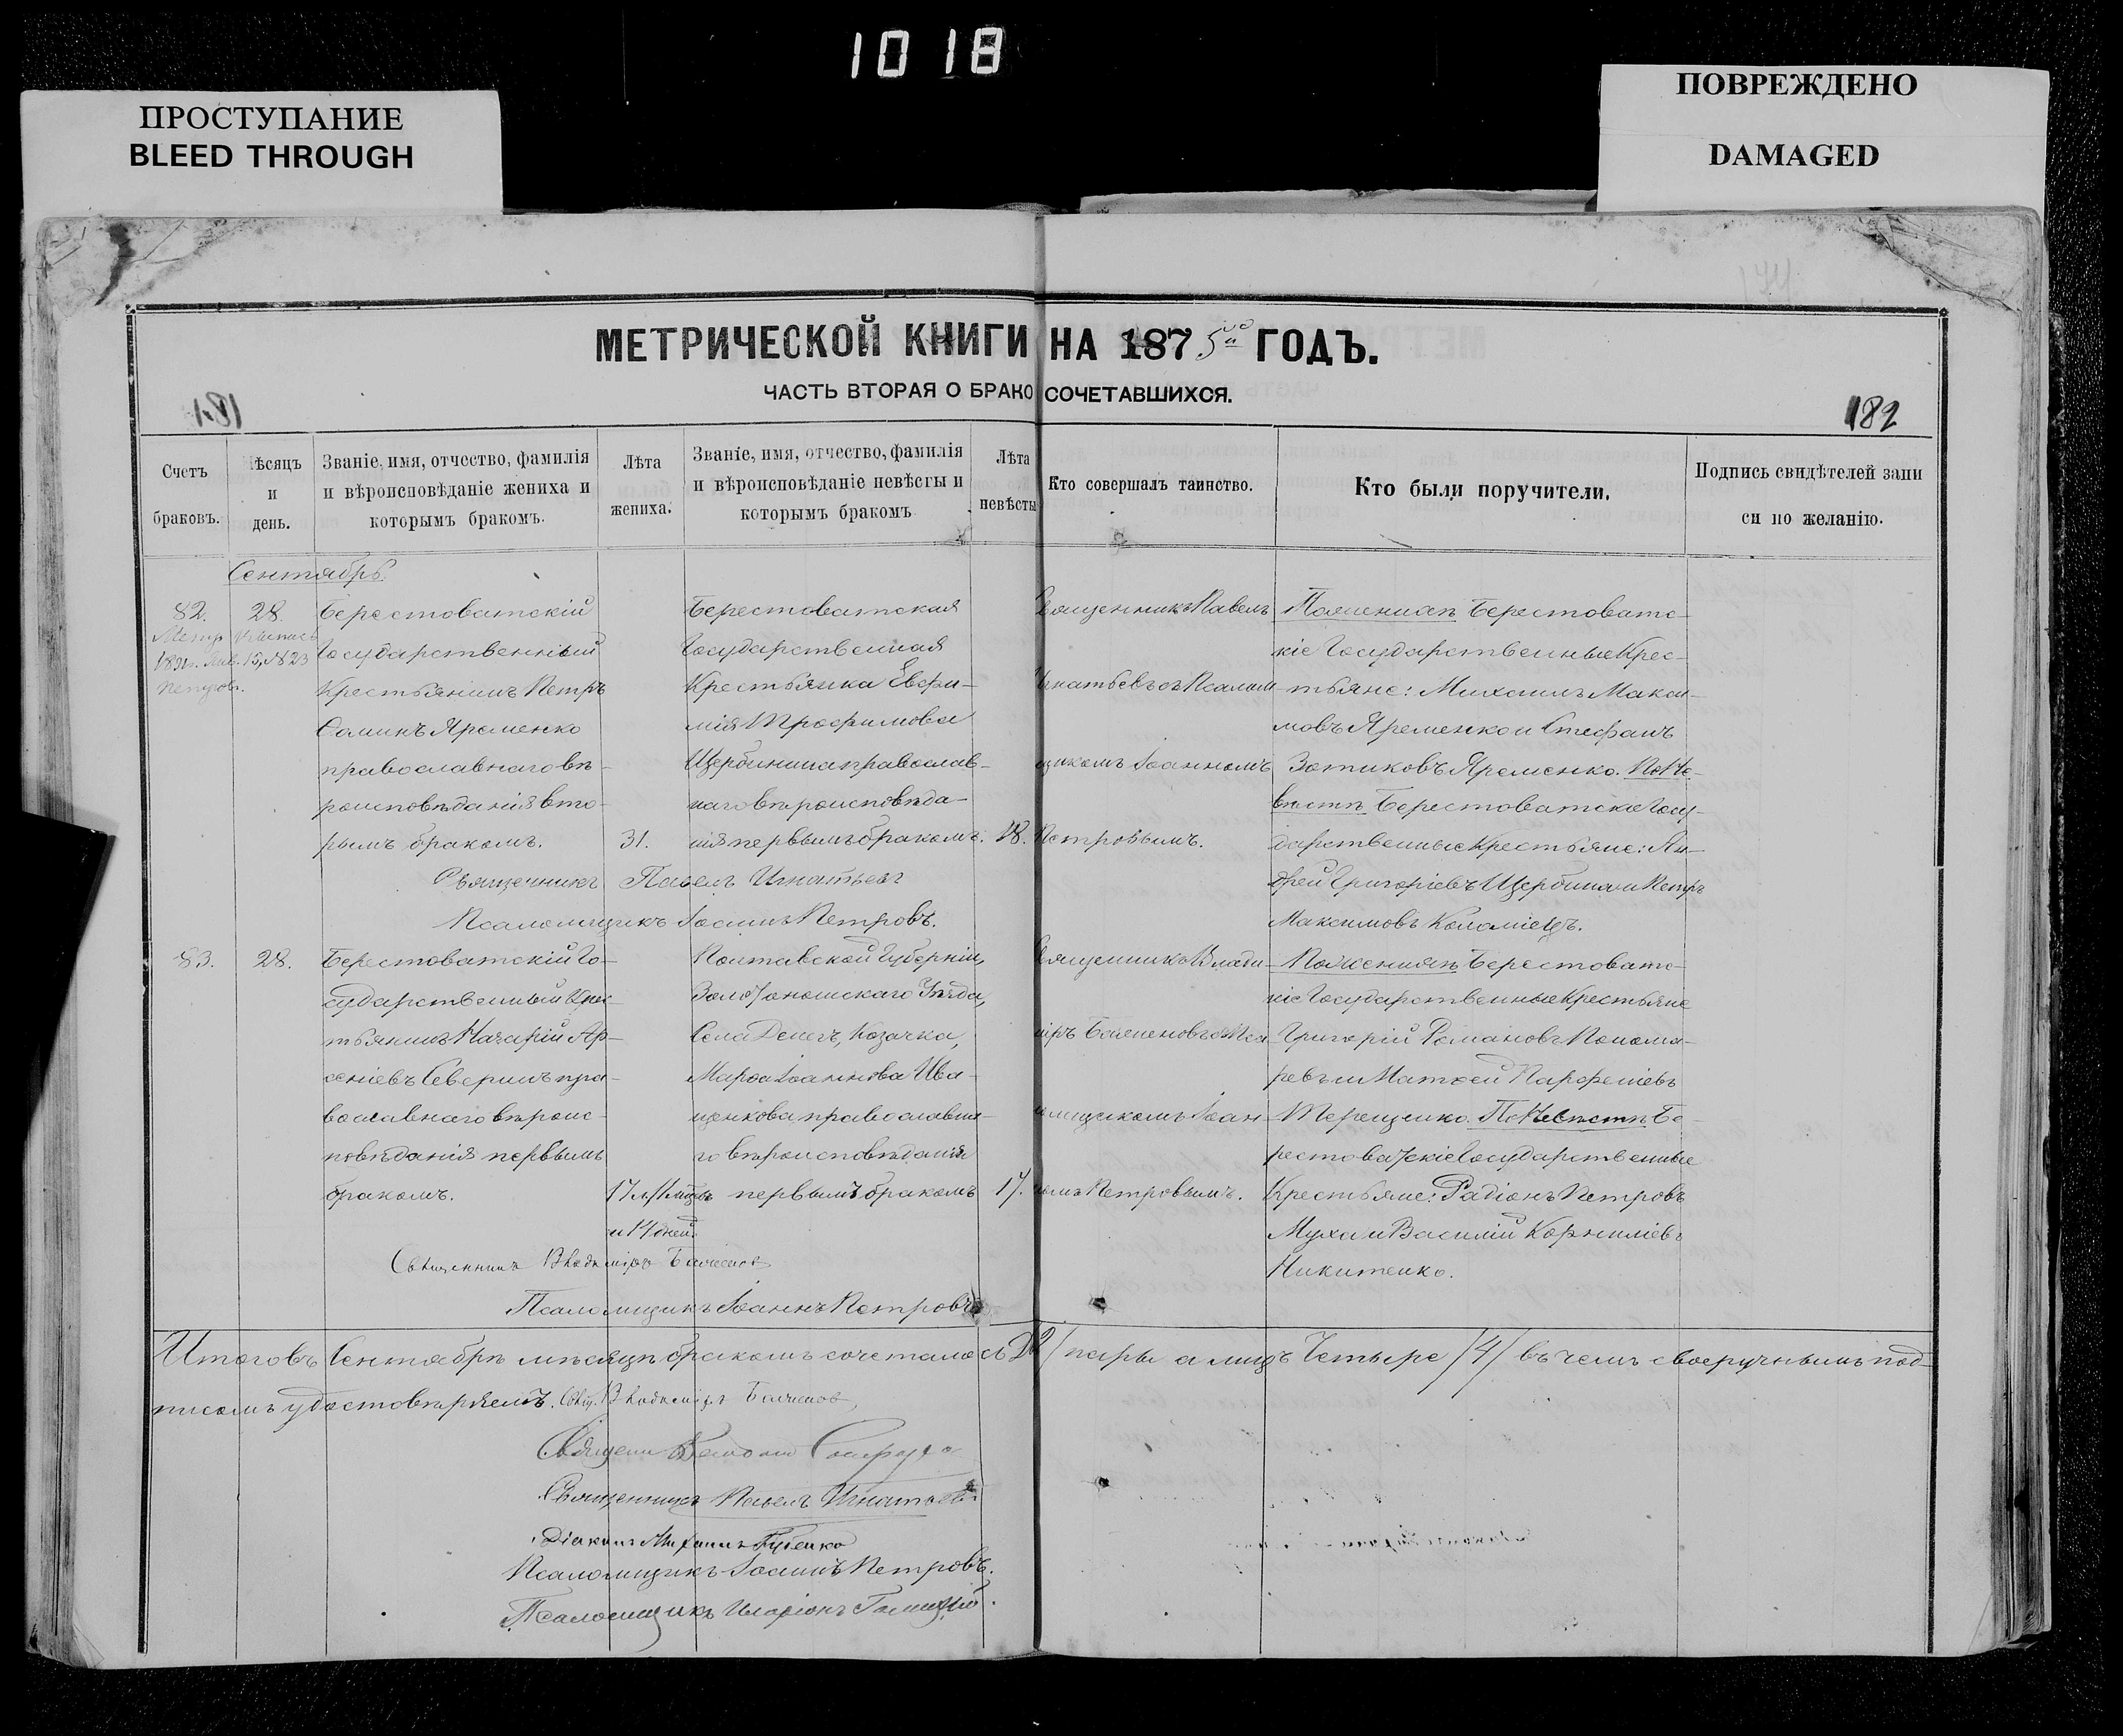 1018
ПРОСТУПАНИЕ
BLEED THROUGH
ПОВРЕЖДЕНО
DAMAGED
МЕТРИЧЕСКОЙ КНИГИ НА 1875 ГОДЪ.
ЧАСТЬ ВТОРАЯ О БРАКОСОЧЕТАВШИХСЯ.
181
182
Счетъ
браковъ.
Мѣсяцъ
и
день.
Званіе, имя, отчество, фамилія
и вѣроисповѣданіе жениха и
которымъ бракомъ.
Лѣта
жениха.
Званіе, имя, отчество, фамилія
и вѣроисповѣданіе невѣсты и
которымъ бракомъ
Лѣта
невѣсты
Кто совершалъ таинство.
Кто были поручители.
Подпись свидѣтелей запи
си по желанію.
Сентябрь.
82.
28.
Берестоватскій
Государственный
Крестьянинъ Петръ
Яременко
православнаго вѣ-
роисповѣданія вто-
рымъ бракомъ.
31.
Берестоватская
Государственная
Крестьянка Евфи-
мія Трофимова
Щербинина православ-
наго вѣроисповѣда-
нія первымъ бракомъ.
18.
Священникъ Павелъ
Игнатьевъ съ Псалом-
щикомъ Іоанномъ
Петровымъ.
По женихѣ Берестоватс-
кіе Государственные Крес-
тьяне: Михаилъ Макси-
мовъ Яременко и Стефанъ
Зотиковъ Яременко. По Не-
вѣстѣ Берестоватскіе Госу-
дарственные Крестьяне: Ан-
дрей Григоріевъ Щербина и Петръ
Максимовъ Коломіецъ.
Священникъ Павелъ Игнатьевъ
Псаломщикъ Іоаннъ Петровъ.
83.
28.
Берестоватскій Го-
сударственный Крес-
тьянинъ Назарій Ар-
сеніевъ Северинъ пра-
вославнаго вѣроис-
повѣданія первымъ
бракомъ.
и 14 дней.
Полтавской Губерніи,
Золотоношскаго Уѣзда,
Села Денегъ, Козачка,
Марѳа Іоаннова Ива-
щенкова, православна-
го вѣроисповѣданія
первымъ бракомъ
17.
Священникъ Влади-
міръ съ Пса-
ломщикомъ Іоан-
номъ Петровымъ.
По женихѣ Берестоватс-
кіе Государственные Крестьяне
Григорій Романовъ Понома-
ревъ и Матѳей Парфеніевъ
Терещенко. По Невѣстѣ Бе-
рестоватскіе Государственные
Крестьяне: Радіонъ Петровъ
Муха и Василій Корниліевъ
Никитенко.
Священникъ Владиміръ
Псаломщикъ Іоаннъ Петровъ
Итого въ Сентябрѣ мѣсяцѣ бракомъ сочеталось 2 пары а лицъ Четыре /4/ въ чемъ своеручнымъ под-
писомъ удостовѣряемъ. Свящ. Владиміръ
Священникъ Павелъ Игнатьевъ
Діаконъ Михаилъ Губенко
Псаломщикъ Іоаннъ Петровъ.
Псаломщикъ Иларіонъ